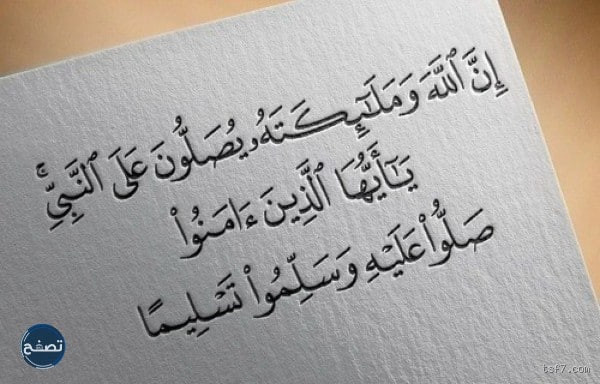 إِنَّ ٱللَّهَ وَمَلَٰٓئِكَتَهُۥ يُصَلُّونَ عَلَى ٱلنَّبِيِّۚ
يَٰٓأَيُّهَا ٱلَّذِينَ ءَامَنُواْ
صَلُّواْ عَلَيۡهِ وَسَلِّمُواْ تَسۡلِيمًا
تصفح
tsf7.com